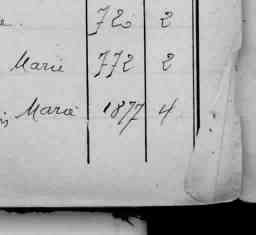 72 2
Marie 772 2
Marie 1877 4